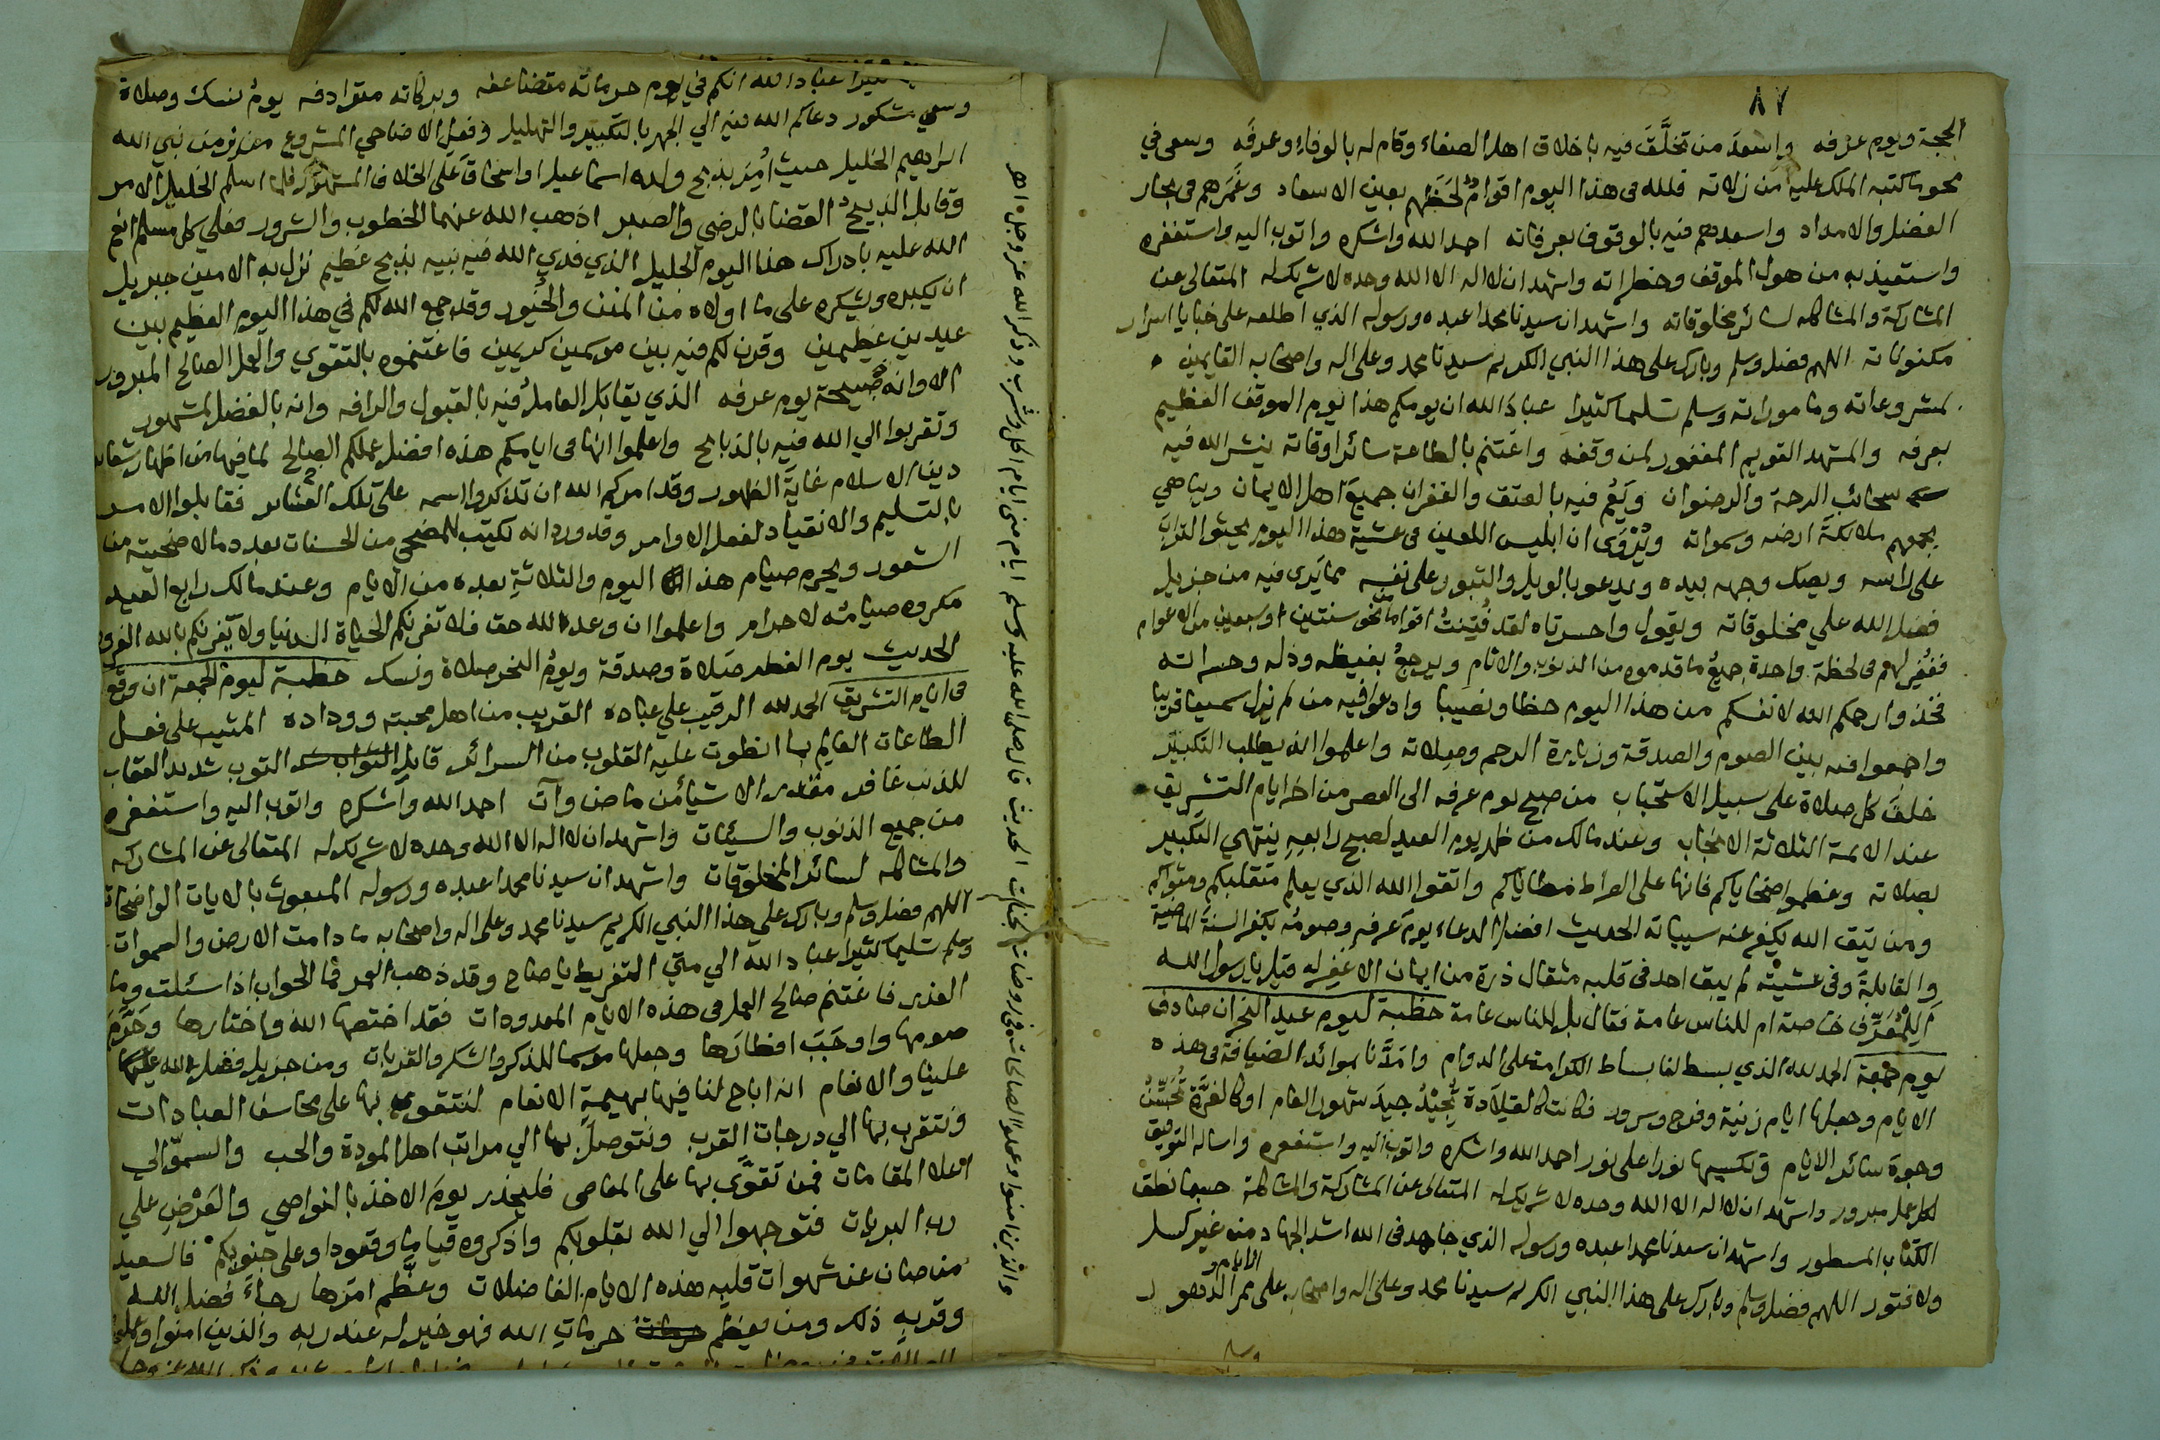 ٨٧
الحجة ويوم عرفه واسعد من تخلَّقَ فيه باخلاق اهل الصفاء وقام له بالوفاء وعرفه وسعى في
محو ما كتبه الملك عليه من زلاته فلله فى هذا اليوم اقوام لحظهم بعين الاسعاد وغمرهم فى بحار
الفضل والامداد واسعدهم فيه بالوقوف بعرفاته احمد الله واشكره واتوب اليه واستغفره
واستعيذ به من هول الموقف وخطراته واشهد ان لا اله الا الله وحده لا شريك له المتعالى عن
المشاركة والمشاكله لسائر مخلوقاته واشهد ان سيدنا محمدا عبده ورسوله الذي اطلعه على خبايا اسرار
مكنوناته اللهم فصل وسلم وبارك على هذا النبي الكريم سيدنا محمد وعلى اله واصحابه القايمين
بمشروعاته وماموراته وسلم تسليما كثيرا عباد الله ان يومكم هذا يوم الموقف العظيم
بعرفه والمشهد القويم المغفور لمن وقفه واغتنم بالطاعة سائر اوقاته ينشر الله فيه
سحائب الرحمة والرضوان ويَعُم فيه بالعتق والغفران جميعَ اهل الايمان ويباهي
بجمعهم ملائكةَ ارضه وسمواته ويُرْوَى ان ابليس اللعين فى عشية هذا اليوم يحيثو الترابَ
على راسه ويصك وجهه بيده ويدعو بالويل والثبور على نفسه مما يَرى فيه من جزيل
فضل الله علي مخلوقاته ويقول واحسرتاه لقد فُتِنتُ اقواما نحو سنتين او سبعين من الاعوام
فغُفِر لهم فى لحظة واحدة جميعُ ما قدموه من الذنوب والاثام ويرجعُ بغيظه وذله وحسراته
فخذوا رحمكم الله لانفسكم من هذا اليوم حظا ونصيبا وادعوا فيه من لم يزل سميعا قريبا
واجمعوا فيه بين الصوم والصدقة وزيارة الرحم وصلاته واعلموا انه يطلب التكبير
خلفَ كل صلاة على سبيل الاستحباب من صبح يوم عرفه الى العصر من اخر ايام التشريق
عند الائمة الثلاثة الانجاب وعند مالك من ظهر يوم العيد لصبح رابعِهِ ينتهي التكبير
بصلاته وعظموا ضحاياكم فانها على الصراط مطاياكم واتقوا الله الذي يعلم متقلبكم ومثواكم
ومن يتق الله يكفر عنه سيئاته الحديث افضل الدعاء يوم عرفه وصومُه يكفر السنةَ الماضية
والقابلةَ وفى عشيتْه لم يبق احد فى قلبه مثقال ذرة من ايمان الا غفر له قيل يا رسول الله
أَلِلْمُعَرِّفِ خاصة ام للناس عامة فقال بل للناس عامة خطبة ليوم عيد النحر ان صادف
يوم جمعة الحمد لله الذي بسط لنا بساط الكرامة على الدوام وامَدَّنا بموائد الضيافة فى هذه
الايام وجعلها ايام زينة وفرح وسرور فكانت كالقِلَادة تُجيِّدُ جيدَ شهور العام او كالغرَّة تُحَسِّنُ
وجوهَ سائر الايام وتكسيها نورا على نور احمد الله واشكره واتوب اليه واستغفره واساله التوفيق
لكل عمل مبرور واشهد ان لا اله الا الله وحده لا شريك له المتعالى عن المشاركة والمشاكلة حسبما نطق
الكتاب المسطور واشهد ان سيدنا محمدا عبده ورسوله الذي جاهد فى الله اشد الجهاد من غير كسل
ولا فتور اللهم فصل وسلم وبارك على هذا النبي الكريم سيدنا محمد وعلى اله واصحابه على ممر الايام والدهور
وسلم
كثيرا عباد الله انكم في يوم حرماته متضاعفه وبركاته مترادفه يومُ نسك وصلاة
وسعي مشكور دعاكم الله فيه الي الجهر بالتكبير والتهليل وفعل الاضاحي المشروع من نبي الله
ابراهيم الخليل حيث أُمِرَ بذبح ولده اسماعيل او اسحاق على الخلاف المشهور فلما اسلم الخليل الامر
وقابل الذبيحُ القضا بالرضى والصبر اذهب الله عنهما الخطوب والشرور فعلي كل مسلم انعم
الله عليه بادراك هذا اليوم الجليل الذي فدي الله فيه نبيه بذبح عظيم نزل به الامين جبريل
ان يكبره ويشكره على ما اولاه من المنن والحُبور وقد جمع الله لكم في هذا اليوم العظيم بين
عيدين عظيمين وقرن لكم فيه بين موسمين كريمين فاغتنموه بالتقوي والعمل الصالح المبرور
الا وانه صُبيحة يوم عرفه الذي يقابَل العاملُ فيه بالقبول والرافه وانه بالفضل لمشهور
وتقربوا الي الله فيه بالذبايح واعلموا انها فى ايامكم هذه افضل عملكم الصالح لما فيها من اظهار شعائر
دين الاسلام غايةَ الظهور وقد امركم الله ان تذكروا اسمه على تلك الشعائر فقابلوا الامر
بالتسليم والانقياد لفعل الاوامر وقد ورد انه يكتب للمضحي من الحسنات بعدد ما لاضحيته من
الشعور ويحرم صيام هذا اليوم والثلاثةِ بعده من الايام وعند مالك رابع العيد
مكروه صيامُه لا حرام واعلموا ان وعد الله حق فلا تغرنكم الحياة الدنيا ولا يغرنكم بالله الغرور
الحديث يوم الفطر صَلاة وصدقة ويومُ النحر صلاة ونسك خطبة ليوم الجمعة ان وقع
فى ايام التشريق الحمد لله الرقيب علي عباده القريب من اهل محبته ووداده المثيب على فعل
الطاعات العالم بما انطوت عليه القلوب من السرائر قابل التوب شديد العقاب
للذنب غافر مقدر الاشيا من ماض وآت احمد الله واشكره واتوب اليه واستغفره
من جميع الذنوب والسيئات واشهد ان لا اله الا الله وحده لا شريك له المتعالى عن المشاركه
والمشاكله لسائر المخلوقات واشهد ان سيدنا محمدا عبده ورسوله المبعوث بالايات الواضحات
اللهم فصل وسلم وبارك علي هذا النبي الكريم سيدنا محمد وعلى اله واصحابه ما دامت الارض والسموات
وسلم تسليما كثيرا عباد الله الي متي التفريط يا صاح وقد ذهب العمر فما الجواب اذا سئلت وما
العذر فاغتنم صالح العمل فى هذه الايام المعدودات فقد اختصها الله واختارها وحَرَّمَ
صومها واوجَبَ افطارَها وجعلها موسما للذكر والشكر والقربات ومن جزيل فضل الله
علينا والانعام انه اباح لنا فيها بهيمة الانعام لنتقوى بها على محاسن العبادات
ونتقرب بها الي درجات القرب ونتوصل بها الي مراتب اهل المودة والحب والسموّ الي
اعلا المقامات فمن تقوَّى بها على المعاصى فليحذر يومَ الاخذ بالنواصي والعَرْضِ علي
رب البريات فتوجهوا الي الله بقلوبكم واذكروه قياما وقعودا وعلى جنوبكم فالسعيد
من صان عن شهوات قلبه هذه الايام الفاضلات وعظَّم امرَها رجاءَ فضل الله
وقربه ذلك ومن يعظم حرمات الله فهو خير له عند ربه والذين امنوا وعملوا
والذين امنوا وعملوا الصالحات فى روضات الجنات الحديث قال صلى الله عليه وسلم ايام منى ايام اكل وشرب وذكر الله عز وجل اهـ